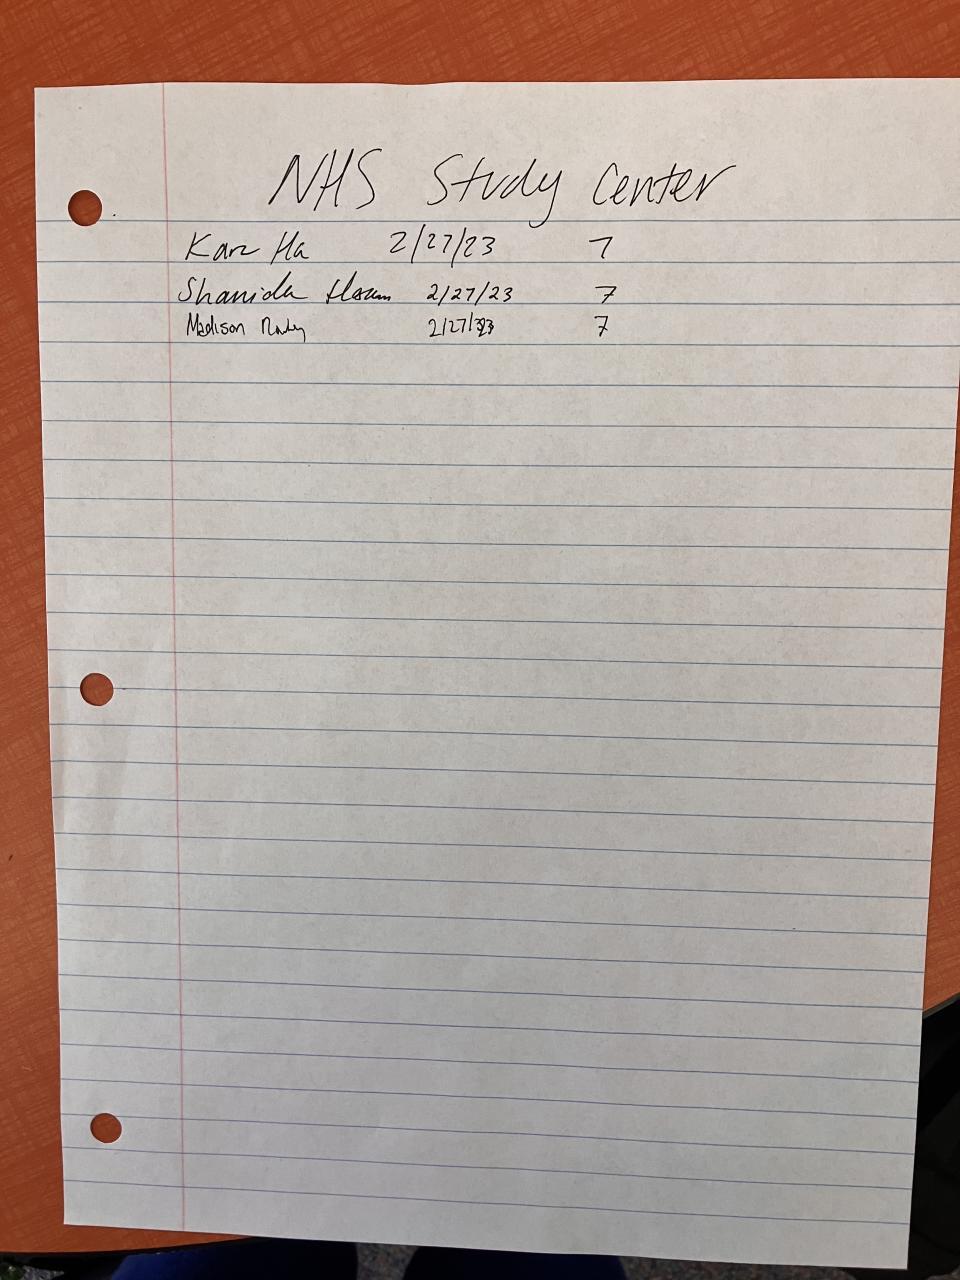 NHS Study Center
Ha 2/27/23 7
Shanida 2/27/23 7
Madison 2/27/23 7